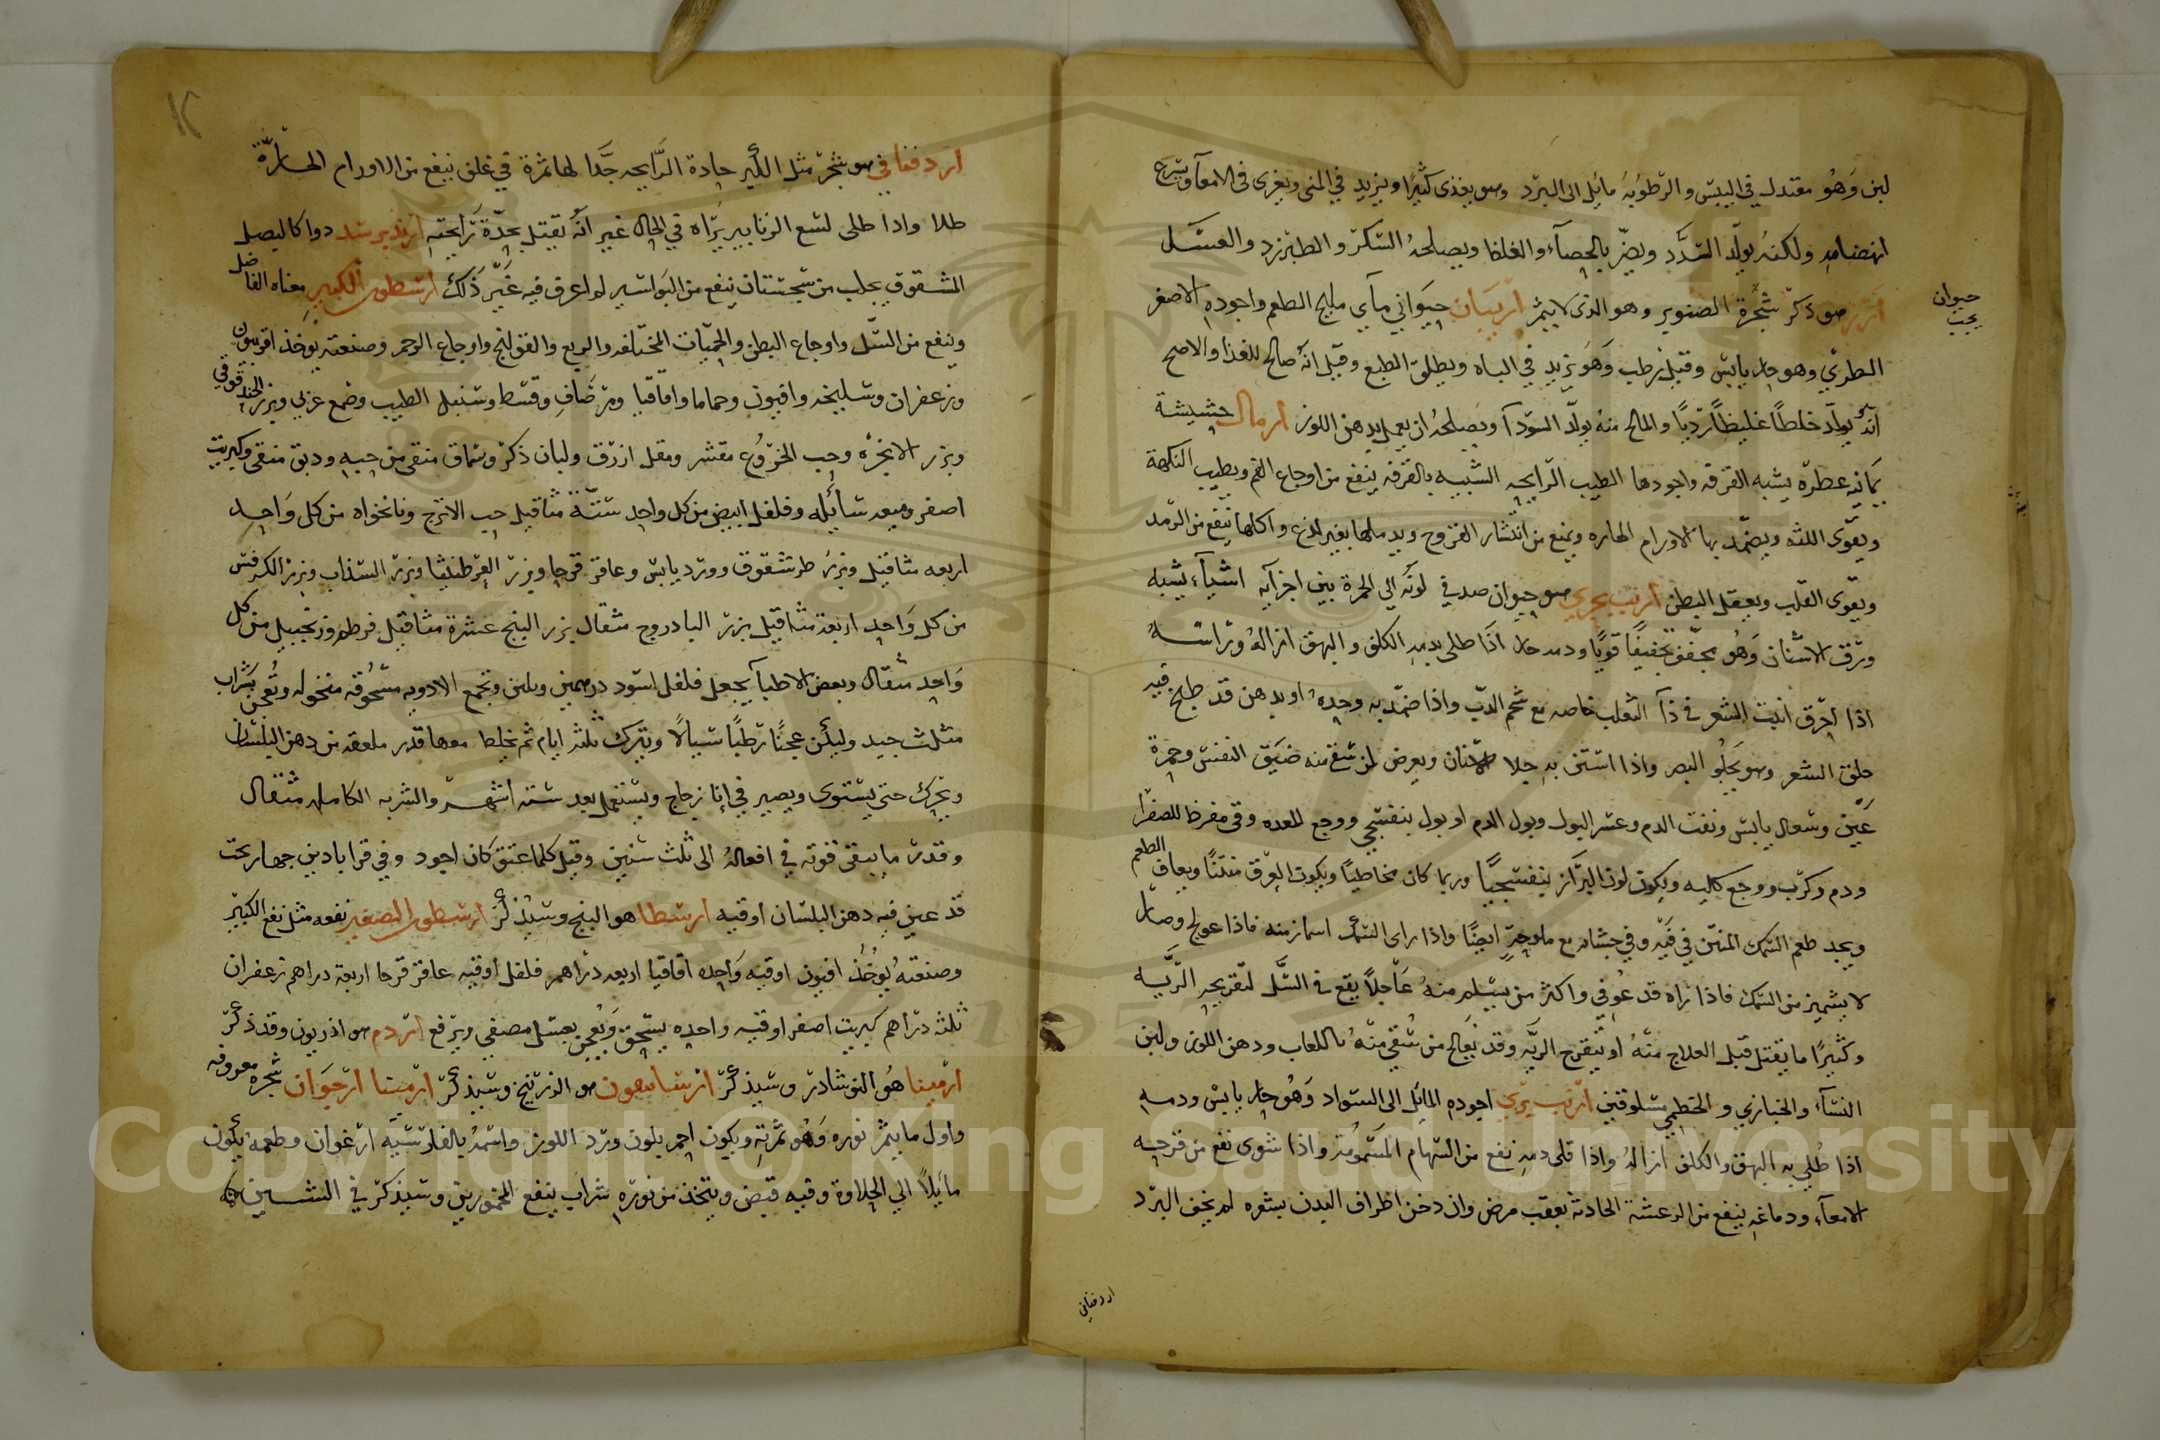 لبن وَهُو معتدل في اليبس والرطوبة مائل الى البرد وهو يغذى كثيرًا ويزيد في المنى ويغرى في الامعآ ويسرع
انهضامه ولكنه يولّد السّدد ويضرّ بالحصآء والغلظا ويصلحهُ السّكرّ والطبرزد والعسَل
أرز هو ذكر شجرة الصنوبر وهو الذى لا يثمر أربيان حيَواني مآي مليح الطعم واجوده الاصفر
حيوان
يجب
الطري وهو حار يابس وقيل رطب وَهَو يزيد في الباه ويطلق الطبع وقيل انه صالح للغذا والاصح
انّهُ يولّد خلطًا غليظًا رديًا والمالح منهُ يولّد السّودآ ويصلحهُ ان يعمل بدهن اللوز أرمال حشيشة
يَمانيه عطرة يشبه القرفه واجودها الطيب الرايحه الشبيه بالقرفه ينفع من اوجاع الفم ويطيب النكهة
ويقوّى اللثه ويضمّد بها الاورام الحاره ويمنع من انتشار القروح ويدملها بغير لذع واكلها ينفع من الرمد
ويقوى القلب ويعقل البطن أرنب بحري هو حيوان صدفي لونُه الي الحمرة بين اجزآيه اشيآء يشبه
ورق الاشنان وَهُو مجفّف تجفيفًا قويًا ودمه حار اذَا طلى بدمه الكلف والبهق ازالهُ وراسهُ
اذا احرق انبت الشعر في دآ الثعلب خاصه مع شحم الدّب واذا ضمّد به وحده او بدهن قد طبخ فيه
حلق الشعر وهو يَجلُو البصر واذا استنّ به جلا الاسنان ويعرض لمن سُقي منه ضيق النفس وحمرة
عَين وسعال يابس ونفث الدم وعسر البول وبول الدم او بول بنفسجي ووجع المعده وقي مفرط للصفرا
ودم وكرب ووجع كليه ويكون لون البراز بنفسجيًا وربما كان مخاطيًا ويكون العرق منتنًا ويعاف الطعم
ويجد طعم السّمك المنتن في فيه وفي جشايه مع ايضًا واذا راى السّمك اسماز منه فاذا عولج وصار
لا يشميز من السّمك فاذا رآه قد عُوفي واكثر من يسلم منهُ عَاجلاً يقع في السّل لتقريحه الريه
وكثيرًا ما يقتل قبل العلاج منهُ او بتقرح الريَه وقد يعالج من سُقي منهُ باللعاب ودهن اللوز ولبن
النسآء والخبازي والخطمي مسلوقين أرنب برّي اجوده المايل الى السواد وَهُو حار يابس ودمه
اذا طُلي به البهق والكلف ازالهُ واذا قلى دمه نفع من السّهام المسَمومة واذا شوى نفع من قرحه
الامعآء ودماغه ينفع من الرعشة الحادثة بعقب مرض وان دخن اطراف البدن بشعره لم يخف البرد
اردفياني
١٢
اردفيانى هو شجر مثل الكبر حادة الرَّايحه جَدّا لها ثمرة في غلف ينفع من الاورام الحارّة
طلا واذا طلى لسع الزنابير برَاه في الحال غير انّه يقتل بحدّة رَايحته دوا كالبصل
المشقوق يجلب من سجستان ينفع من البواسير لم اعرف فيه غير ذَلك ارسطون الكبير معناه الفاضل
وينفع من السّل واوجاع البطن والحميّات المختلفه والربع والقولنج واوجاع الرحم وصنعته يوخذ
وزعفران وسليخه وافيون وحماما واقاقيا ومر صَافِ وقسط وسنبل الطيب وصمغ عربي وبزر الحندقوقي
وبزر الانجره وحب الخروع مقشر ومقل ازرق ولبان ذكر وسماق منقى من حبه ودبق منقى وكبريت
اصفر وميعه سايله وفلفل ابيض من كل واحد ستّة مثاقيل حب الاترج ونانخواه من كل وَاحد
اربعه مثاقيل وبزر طرشقوق وورد يابس وعاقر قرحا وبزر القرطنيثا وبزر السّذاب وبزر الكرفس
من كل وَاحد اربعة مثاقيل بزر الباذروج مثقال بزر البنج عشرة مثاقيل قرطم وزنجبيل من كل
وَاحد مثقال وبعض الاطبآ يجعل فلفل اسود درهمين وبلبن وتجمع الادويه مسحُوقه منخوله وتُعجن بشراب
مثلث جيد وليكُن عجنًا رطبًا سيالاً ويترك ثلثه ايام ثم يخلط معها قدر ملعقه من دهن البلسان
ويحرك حتى يستوى ويصير في إنا زجاج ويستعمل بعد ستة أشهر والشربه الكامله مثقال
وقدر ما يبقى قوته في افعالهُ الى ثلث سنين وقيل كلما عتق كان اجود وفي قراباذين جهار بخت
قد عين فيه دهن البلسان اوقيه ارسطا هو البنج وسيُذكرُ ارسطون الصغير نفعه مثل نفع الكبير
وصنعتهُ يُوخُذ افيون اوقيه وَاحده اقاقيا اربعه درَاهم فلفل أوقيه عاقر قرحا اربعة دراهم زعفران
ثلث درَاهم كبريت اصفر اوقيه واحده يسحق ويُعجن بعسل مصفي ويرفع اردم هو اذريون وقد ذكرّ
ارمينا هُو النوشادر وسيذكرّ هو الزرنيخ وسيذكرّ ارمينا ارجوَان شجره معروفه
واول ما يثمر نوره وَهُو ثمرته ويكون احمر بلون ورد اللوز واسمهُ بالفارسيَه ارغوان وطعمهُ يكُون
مايلاً الي الحِلاوة وفيه قبض ويتخذ من نوره شراب ينفع للمخمورين وسيذكرّ في الشين
Copyright © King Saud University